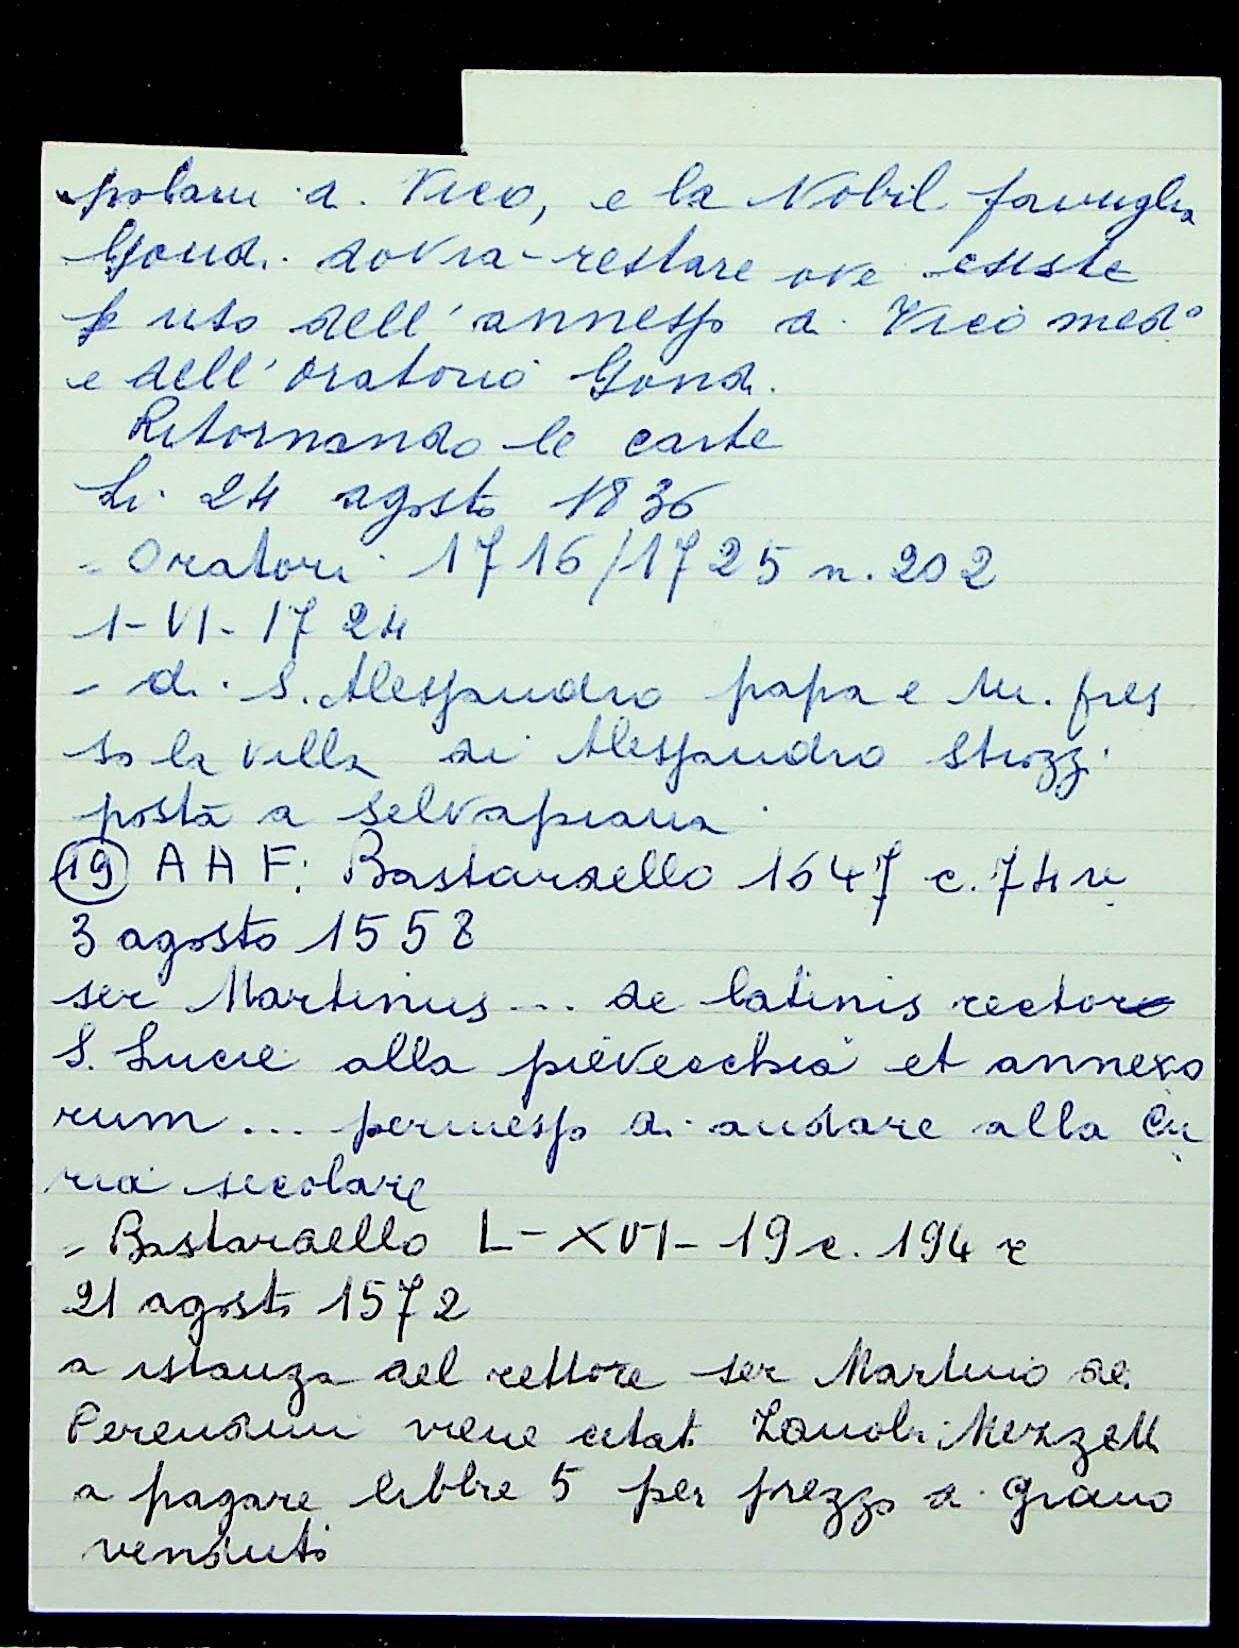 polani di Vico, e la Nobil famiglia
Gondi dovrà restare ove esiste
p uso dell'annesso di Vico medº
e dell'oratorio Gondi.
Ritornando le carte
Li 24 agosto 1836
= Oratori 1716/1725 n. 202
1-VI-1724
- di S. Alessandro papa e M. pres
so la villa di Alessandro Strozzi
posta a Selvapiana
(19) AAF: Bastardello 1647 c. 74 v.
3 agosto 1558
ser Martinus ... de latinis rectore
S. Lucie alla pievecchia et annexo
rum ... permesso di andare alla Cu
ria secolare
= Bastardello L-XVI-19 c. 194 r
21 agosto 1572
a istanza del rettore ser Martino de
viene citato Zanobi Mezzetti
a pagare libbre 5 per prezzo di grano
venduto